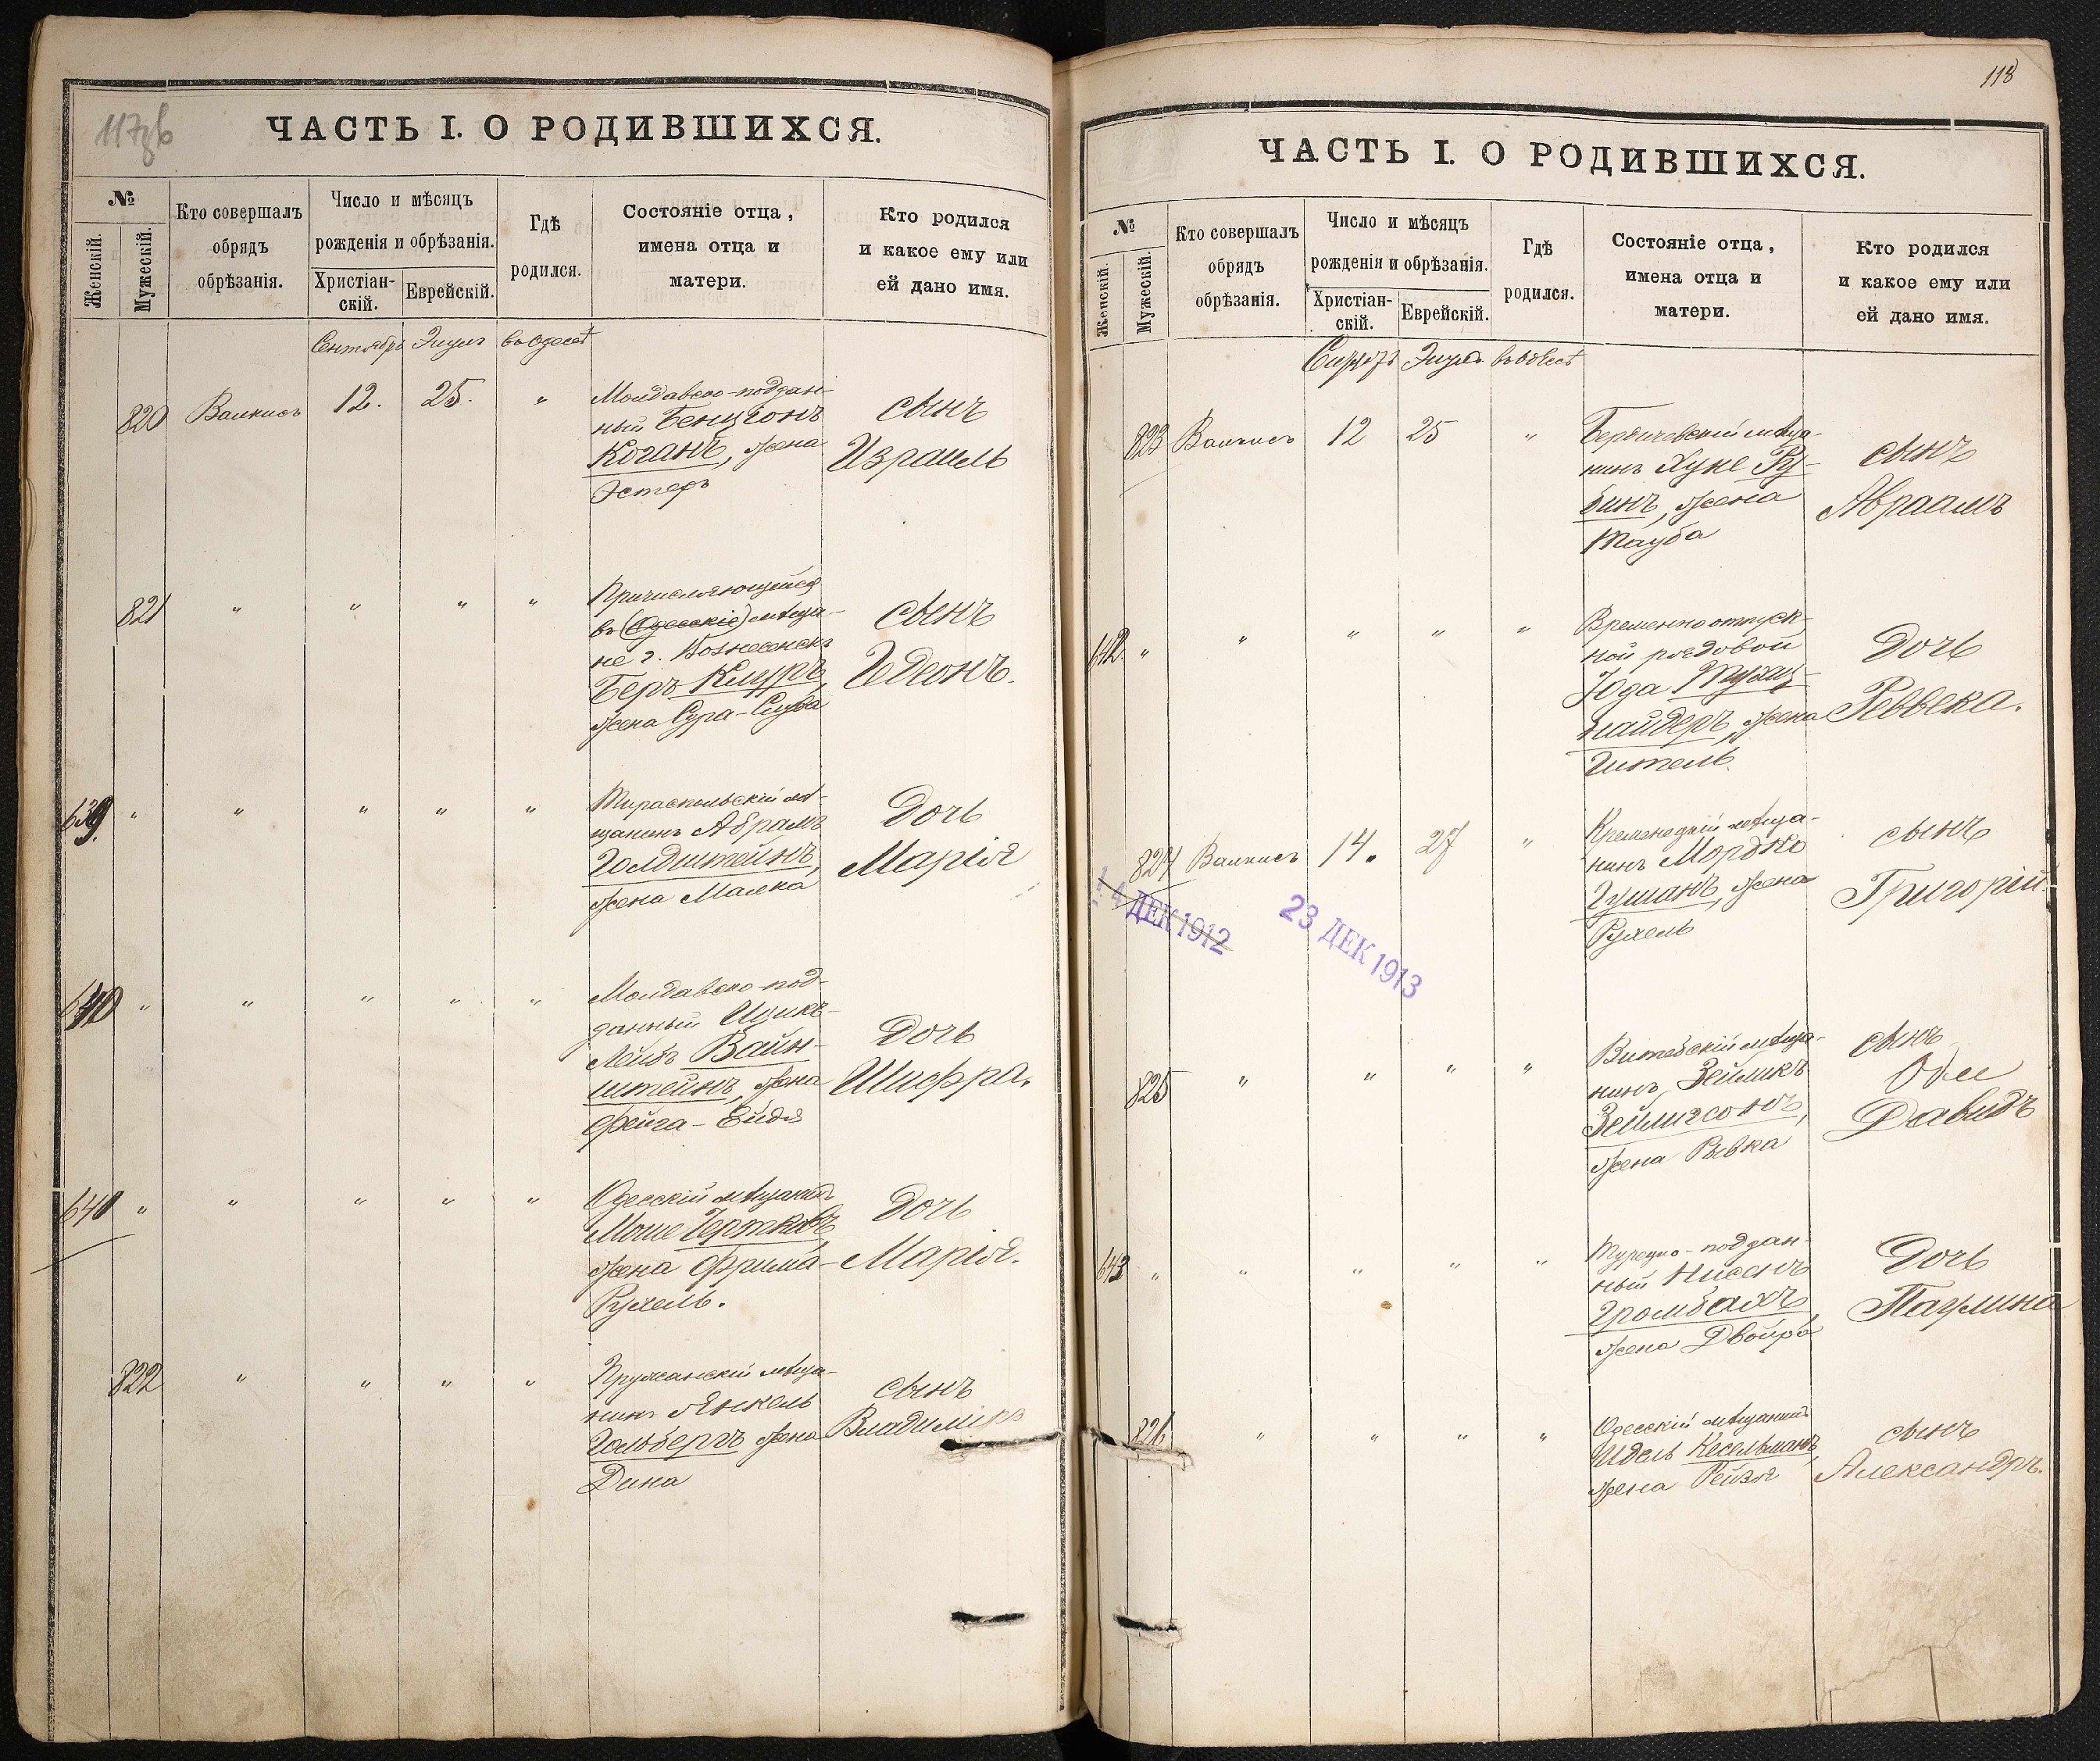 117об
ЧАСТЬ I. О РОДИВШИХСЯ.
№
Женскій.
Мужескій.
Кто совершалъ
обрядъ
обрѣзанія.
Число и мѣсяцъ
рожденія и обрѣзанія.
Христіан-
скій.
Еврейскій.
Гдѣ
родился.
Состояніе отца,
имена отца и
матери.
Кто родился
и какое ему или
ей дано имя.
Сентябрь Элулъ въ Одессѣ
820 Валкисъ 12. 25. "
Молдавско-поддан-
ный Бенціонъ
Коганъ, жена
Эстеръ
сынъ
Израиль
821 " " " "
Причисляющійся
въ (Одесскіе) мѣща-
не г. Вознесенскъ
Беръ
жена Сура-Слува
сынъ
Гедеонъ.
639. " " " " "
Тираспольскій мѣ-
щанинъ Абрамъ
Голдштейнъ,
жена Малка
Дочь
Марія
640 " " " " "
Молдавско-под-
данный Ицикъ-
Лейбъ Вайн-
штейнъ, жена
Фейга-Ейдя
Дочь
Шифра.
641 " " " " "
Одесскій мѣщанинъ
Моше Чертковъ,
жена Фрима-
Рухель.
Дочь
Марія.
822 " " " "
Пружанскій мѣща-
нинъ Янкель
Гольбергъ жена
Дина
сынъ
Владиміръ
118
ЧАСТЬ I. О РОДИВШИХСЯ.
№
Женскій.
Мужескій.
Кто совершалъ
обрядъ
обрѣзанія.
Число и мѣсяцъ
рожденія и обрѣзанія.
Христіан-
скій.
Еврейскій.
Гдѣ
родился.
Состояніе отца,
имена отца и
матери.
Кто родился
и какое ему или
ей дано имя.
Элулъ
823 Валкисъ 12 25 "
Бердичевскій мѣща-
нинъ Хуне Ру-
бинъ, жена
Тауба
сынъ
Авраамъ
642. " " " " "
Временно отпуск-
ной рядовой
Юда
найдеръ, жена
Гитель.
Дочь
Ревека.
824 Валкисъ 14. 27 "
Кременецкій мѣща-
нинъ Мордко
Гушанъ, жена
Рухель
сынъ
Григорій
14 ДЕК 1912
23 ДЕК 1913
825 " " " "
Витебскій мѣща-
нинъ Зейликъ
Зейлигсонъ,
жена Ривка
сынъ
Давидъ
643 " " " " "
Турецко-поддан-
ный Нисонъ
Громбахъ,
жена Двойра
Дочь
Паулина
826 " " " "
Одесскій мѣщанинъ
Идель Кесельманъ,
жена Рейзя
сынъ
Александръ.